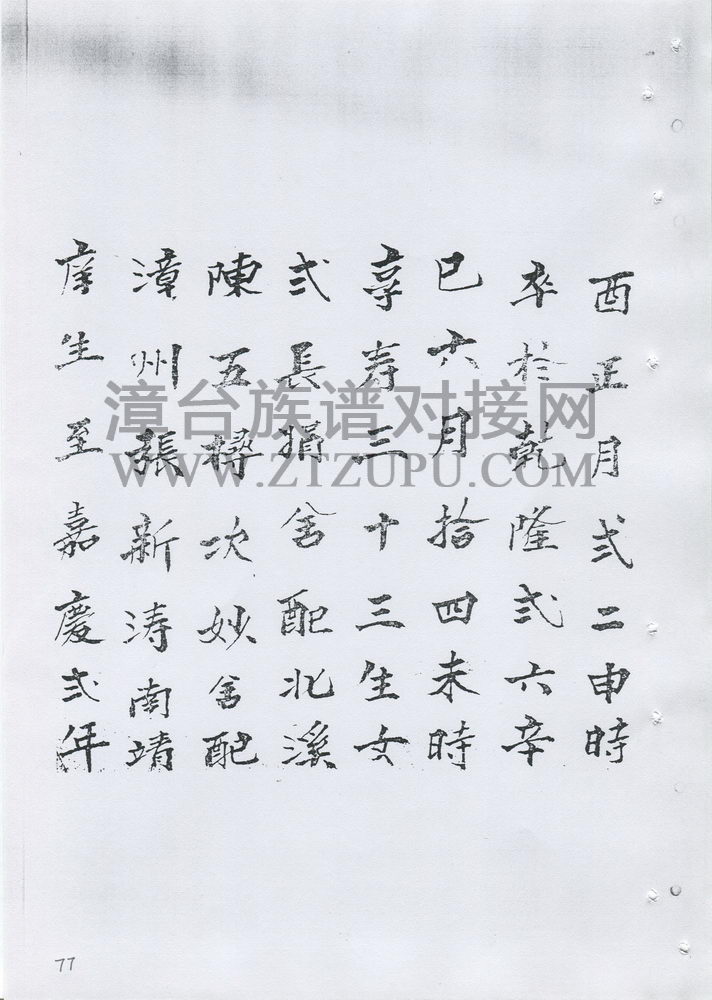 酉正月弍二申時
卒於乾隆弍六辛
巳六月拾四未時
享寿三十三生女
弍長捐舍配北溪
陳五樳次妙舍配
漳州張新涛南靖
庠生至嘉慶弍年
漳台族谱对接网
WWW.ZTZUPU.COM
77